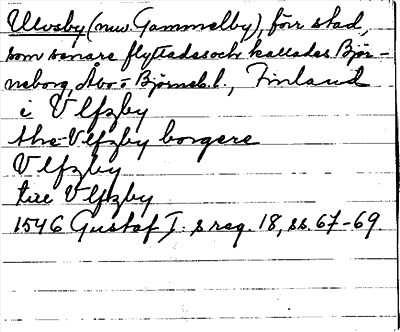 Ulvsby (nuv. Gammelby), förr stad,
som senare flyttades och kallades Björ-
neborg, Åbo o Björneb. l., Finland
i Vlfzby
the Vlfzby borgere
Vlfzby
till Vlfzby
1546 Gustaf I:s reg. 18, ss. 67-69.